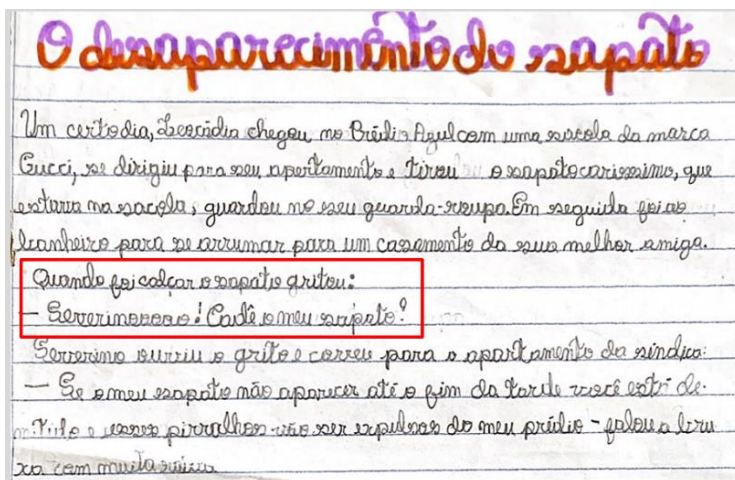 O desaparecimento do sapato
Um certo dia, Leocádia chegou no Prédio Azul com uma sacola da marca
Gucci, se dirigiu para seu apertamento e tirou o sapato caríssimo, que
estava na sacola, guardou no seu guarda-roupa. Em seguida foi ao
banheiro para se arrumar para um casamento da sua melhor amiga.
Quando foi calçar o sapato gritou:
— Severinoooo! Cadê o meu sapato?
Severino ouviu o grito e correu para o apartamento da síndica:
— Se o meu sapato não aparecer até o fim da tarde você está de-
mitido e esses pirralhos vão ser expulsos do meu prédio - falou a bru
xa com muita raiva.